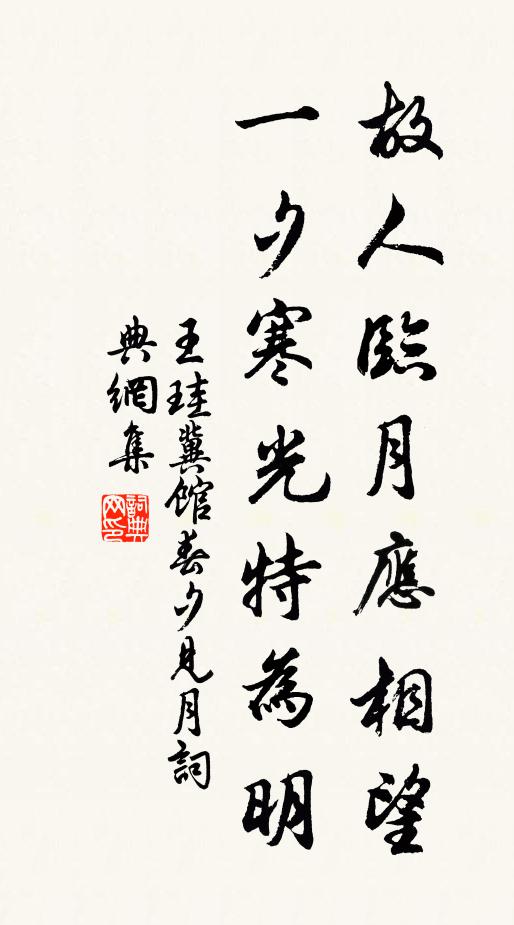 故人臨月應相望
一夕寒光特為明
王珪冀館春夕見月詞
典網集
詞典網印